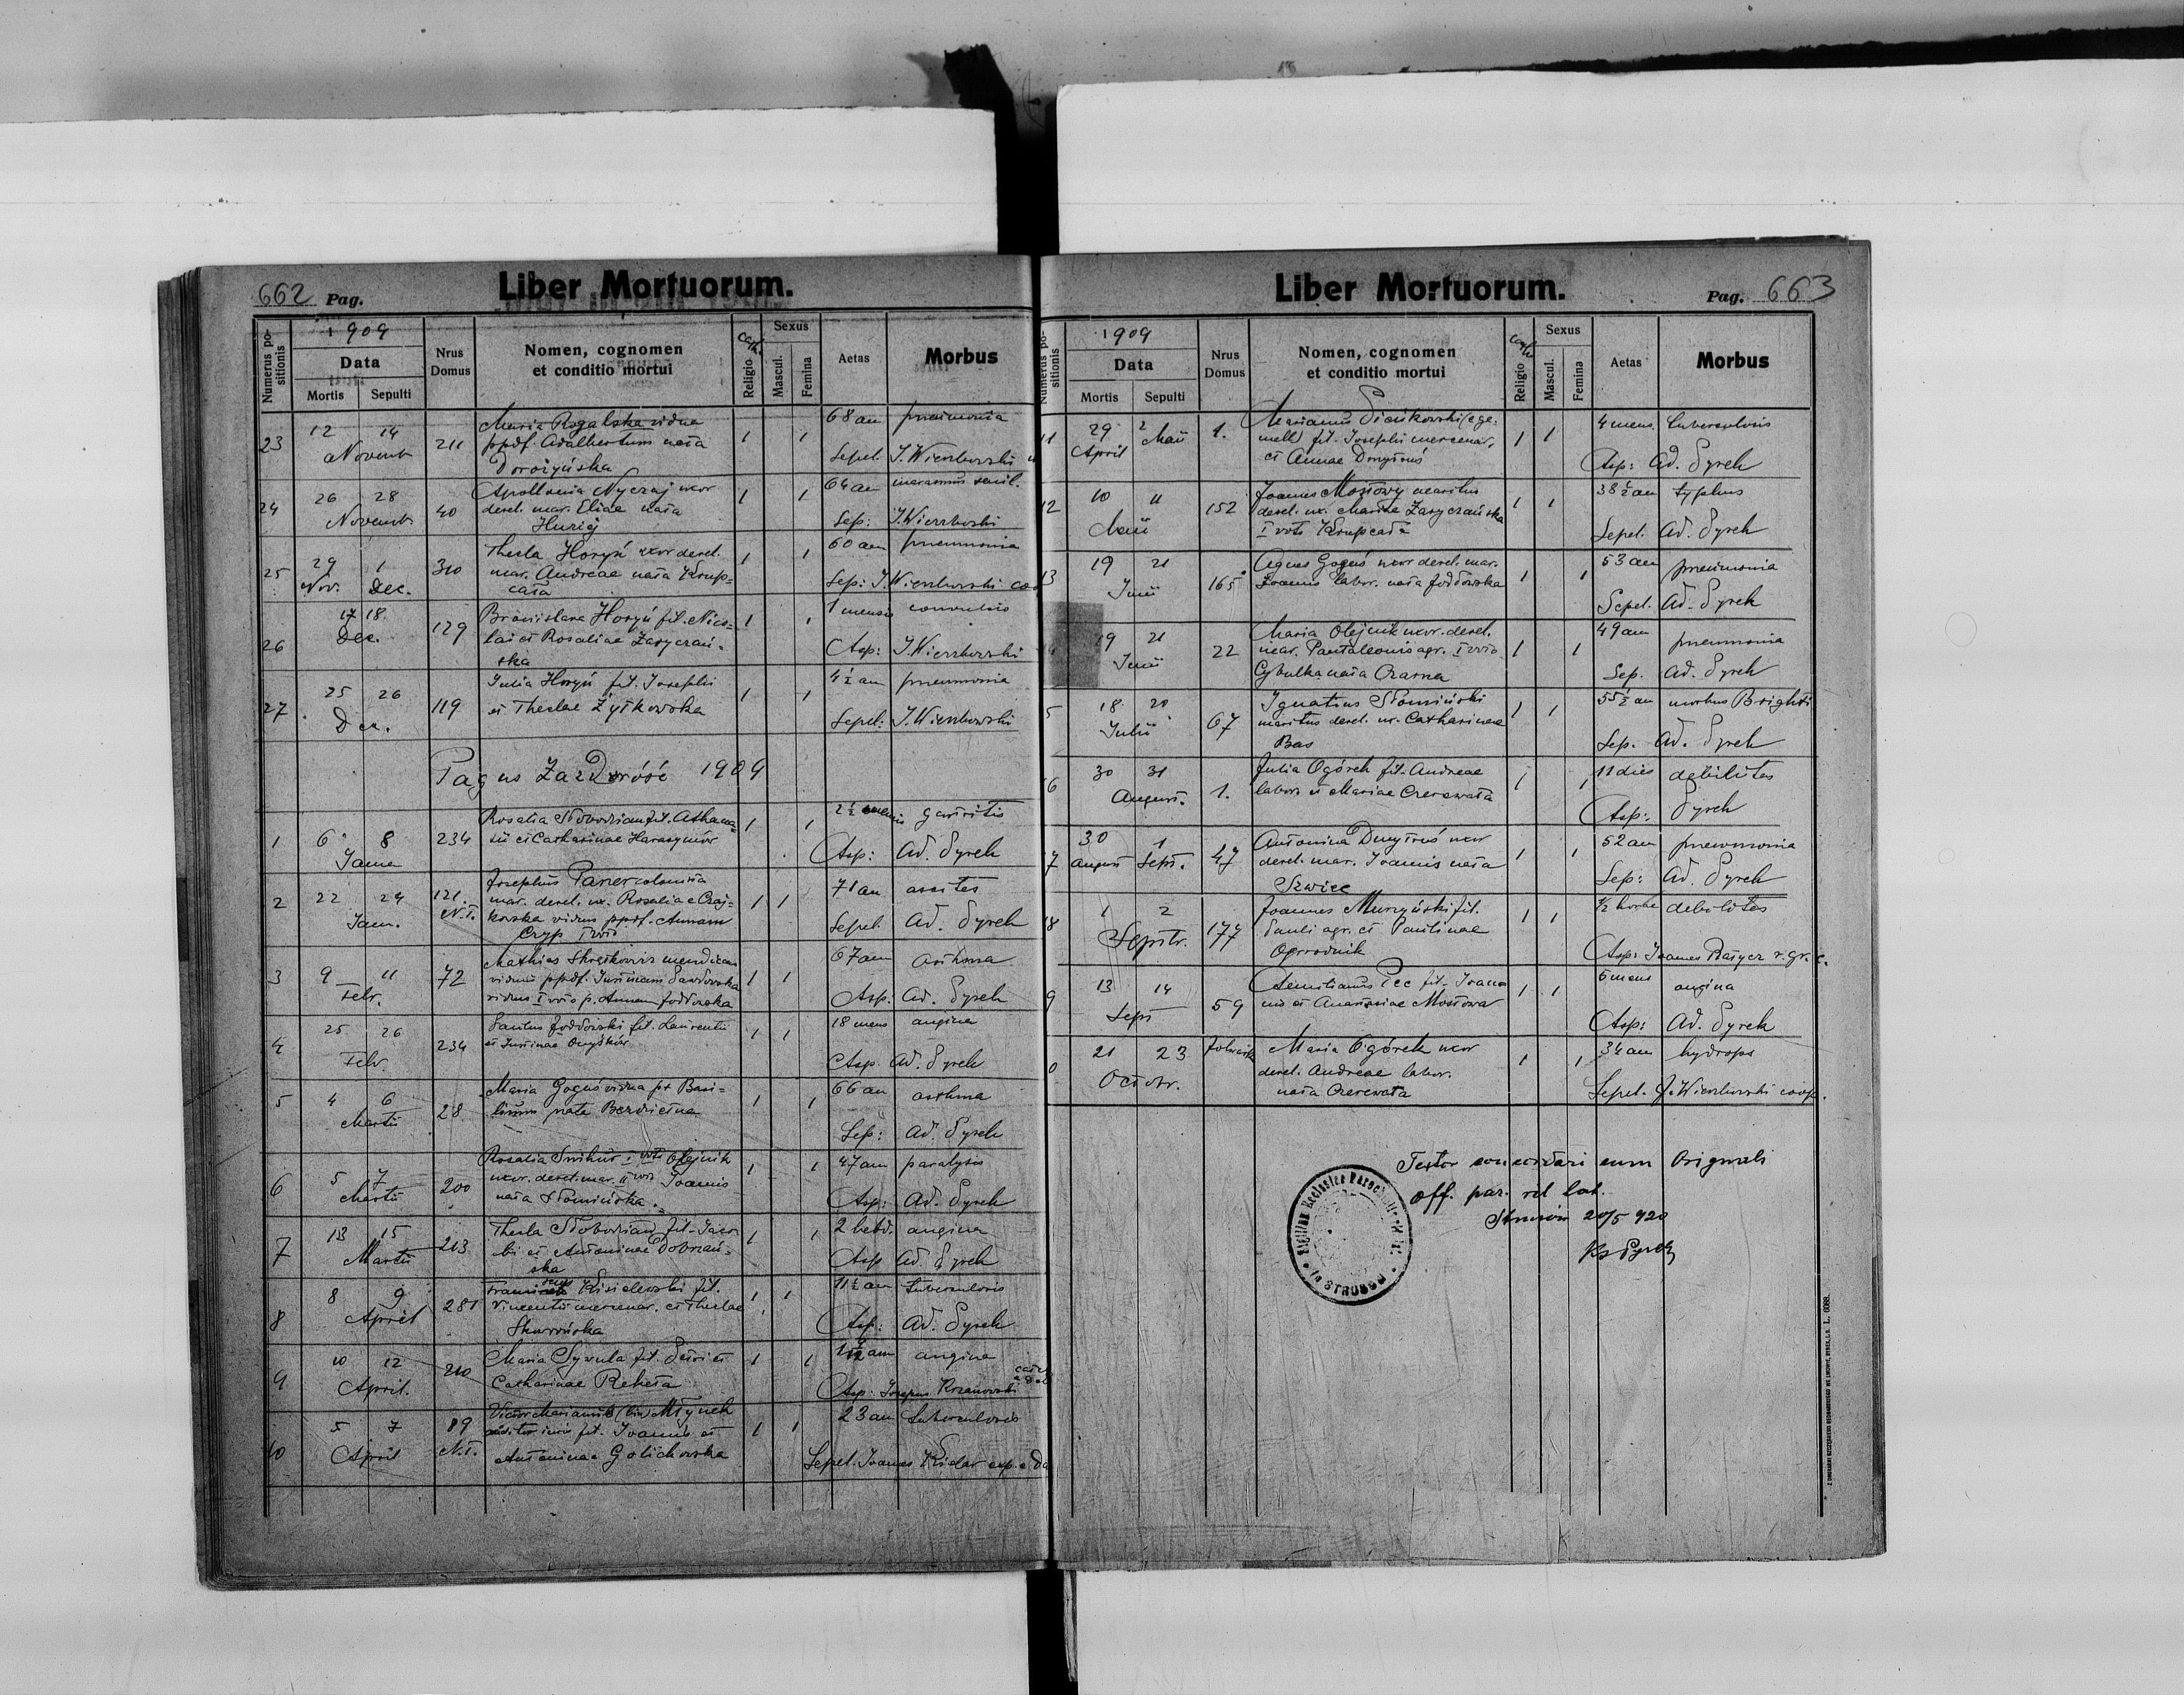 662 Pag.
Liber Mortuorum.
Numerus positionis
1909
Data
Mortis Sepulti
Nrus Domus
Nomen, cognomen
et conditio mortui
cath.
Religio
Sexus
Mascul.
Femina
Aetas
Morbus
23 12 14 Novemb 211 1 1 68 an pneumonia
Maria Rogalska vidua
ppdf. Adalbertum nata
Sepel. J. Wierzbowski
24 26 28 Novemb. 40 1 1 64 an marasmus senil.
Apollonia Nyczaj uxor
derel. mar. Eliae nata
Huziej
Sep: J. Wierzbowski
25 29 Nov. 1 Dec. 310 1 1 60 an pneumonia
Thecla Horyń uxor derel.
mar. Andreae nata Krup=
cała
Sep: J. Wierzbowski
26 17 18 Dec. 129 1 1 1 mensis convulsio
Bronislava Horyń fil. Nico=
lai et Rosaliae Zaryczań=
ska
Asp: J. Wierzbowski
27 25 26 Dec. 119 1 1 4½ an pneumonia
Julia Horyń fil. Josephi
et Theclae Żytkowska
Sepel: J. Wierzbowski
Pagus Zazdrość 1909
1 6 8 Janua 234 1 1 2½ mensis gastritis
Rosalia Słobodzian fil. Athana=
sii et Catharinae Harasymów
Asp: Ad. Pyrek
2 22 24 Jan. 121 N.T. 1 1 71 an ascites
Josephus Paner colonista
mar. derel. ux. Rosaliae Czaj=
kowska viduus ppdf. Annam
Cryp I voto
Sepel. Ad. Pyrek
3 9 11 Febr. 72 1 1 67 an asthma
Mathias mendicus
viduus ppdf. Justinam
viduus I voto p. Annam
Asp. Ad. Pyrek
4 25 26 Febr. 234 1 1 18 mens angina
Paulus fil. Laurentii
et Justinae Onyśków
Asp. Ad. Pyrek
5 4 6 Martii 28 1 1 66 an asthma
Maria Goguś vidua p+ Basi=
lium nata
Sep: Ad. Pyrek
6 5 7 Martii 200 1 1 47 an paralysis
Rosalia I voto Olejnik
uxor. derel. mar. II voto Joannis
nata Słomińska.
Asp: Ad. Pyrek
7 13 15 Martii 213 1 1 2 hebd. angina
Thecla Słobodzian fil. Jaco
bi et Antoninae Dobrzań=
ska
Asp Ad. Pyrek
8 8 9 April 281 1 1 11½ an tuberculosis
Kisielewski fil.
Vincentii mercenar. et Theclae
Asp: Ad. Pyrek
9 10 12 April. 210 1 1 an angina
Maria Sywula fil. Petri et
Catharinae Reheta
Asp:
10 5 7 April 89 N.T. 1 1 23 an tuberculosis
Victor Marianus (bin) Młynek
fil. Joannis et
Antoninae Golichowska
Sepel. Joannes
Liber Mortuorum.
Pag. 663
Numerus positionis
1909
Data
Mortis Sepulti
Nrus Domus
Nomen, cognomen
et conditio mortui
cath.
Religio
Sexus
Mascul.
Femina
Aetas
Morbus
11 29 April 2 Maii 1. 1 1 4 mens. tuberculosis
Marianus (e ge=
mell) fil. Josephi mercenar.
et Annae Dmytruś
Asp: Ad. Pyrek
12 10 11 Maii 152 1 1 38½ an typhus
Joannes Mostowy maritus
derel. ux. Mariae Zaryczańska
I voto Krupcała
Sepel. Ad. Pyrek
13 19 21 Junii 165 1 1 53 an pneumonia
Agnes Goguś uxor derel. mar.
Joannis labor. nata
Sepel. Ad. Pyrek
19 21 Junii 22 1 1 49 an pneumonia
Maria Olejnik uxor. derel.
mar. Pantaleonis agr. I voto
Cybulka nata Czarna
Sep. Ad. Pyrek
5 18 20 Julii 67 1 1 55½ an morbus Brighti
Ignatius Słomiński
maritus derel. ux. Catharinae
Bas
Sep. Ad. Pyrek
6 30 31 August. 1. 1 1 11 dies debilitas
Julia Ogórek fil. Andreae
labor. et Mariae Czerewata
Asp: Pyrek
7 30 August 1 Sept. 47 1 1 52 an pneumonia
Antonina Dmytruś uxor
derel. mar. Joannis nata
Szwiec
Sep: Ad. Pyrek
18 1 2 Septbr. 177 1 1 ½ horae debilitas
Joannes Murzyński fil.
Pauli agr. et Paulinae
Ogrodnik
Asp: Joannes r. gr. c.
9 13 14 Sept 59 1 1 6 mens angina
Aemilianus Pec fil. Joan
nis et Anastasiae Mostowa
Asp: Ad. Pyrek
0 21 23 Octobr. 1 1 34 an hydrops
Maria Ogórek uxor
derel. Andreae labor.
nata Czerewata
Sepel. J. Wierzbowski coop.
Testor concordari cum Originali
Off. par. rit lat.
Strusów 20/5 920
Ks Pyrek
Sigillum Ecclesiae Parochialis r. lat. in STRUSSÓW